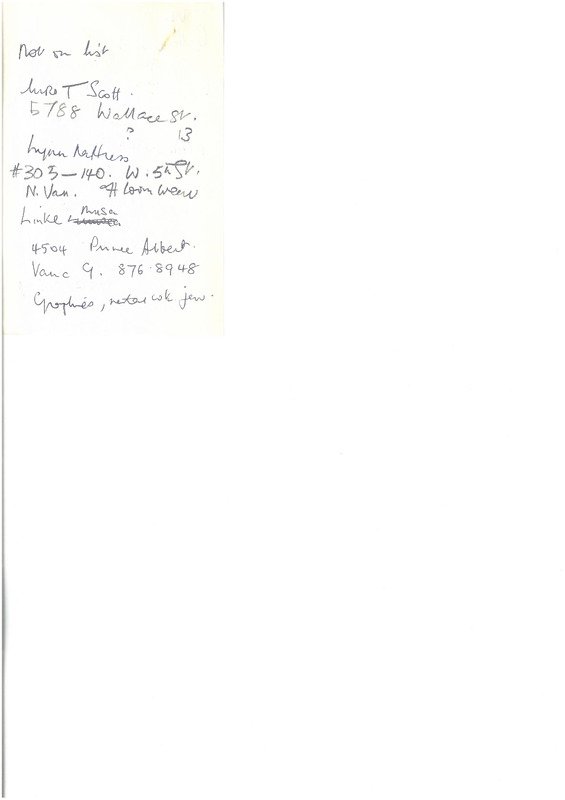 Not on list
T Scott.
5788 Wallace St.
? 13
Lynn
#305-140. W. 5th St.
N. Van. H loom weav
Linke Musa
4504 Prince Albert.
Vanc 9. 876-8948
Graphics, metal wk jew.